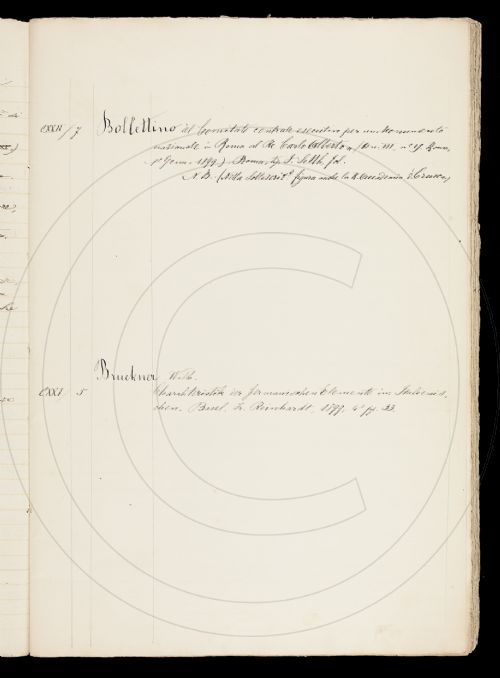 CXXII / 7 Bollettino del Comitato centrale esecutivo per un Monumento
nazionale in Roma al Re Carlo Alberto (An. III. n. 9 Roma,
1º Genn. 1899.) Roma, tip. fol.
N. B. (Nella figura anche la R. Accademia
Bruckner, W.
CXXI / 5 Charakteristik der germanischen Elemente im Italienis-
chen. Basel, L. Reinhardt, 1899. 4º pp. 33.
C